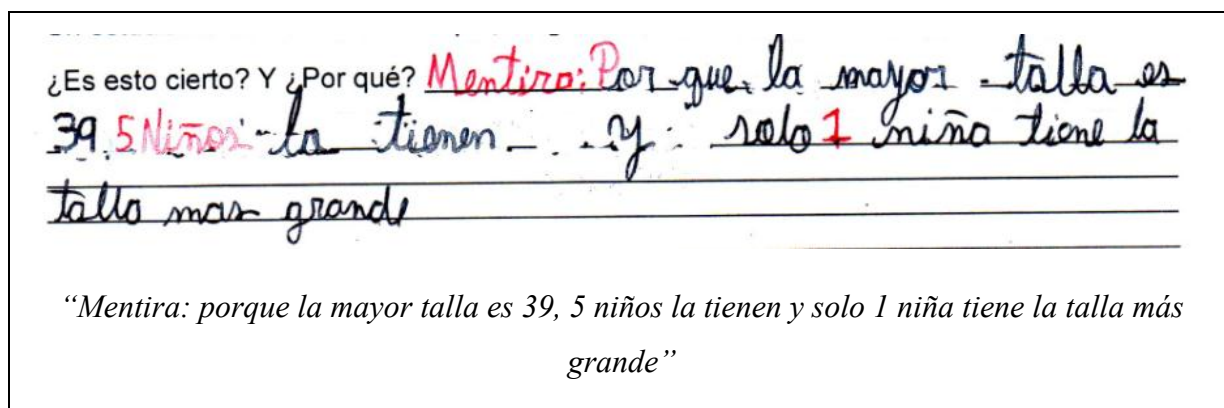 ¿Es esto cierto? Y ¿Por qué? Mentira: Por que la mayor talla es
39. 5 Niños la tienen y solo 1 niña tiene la
talla mas grande
“Mentira: porque la mayor talla es 39, 5 niños la tienen y solo 1 niña tiene la talla más
grande”